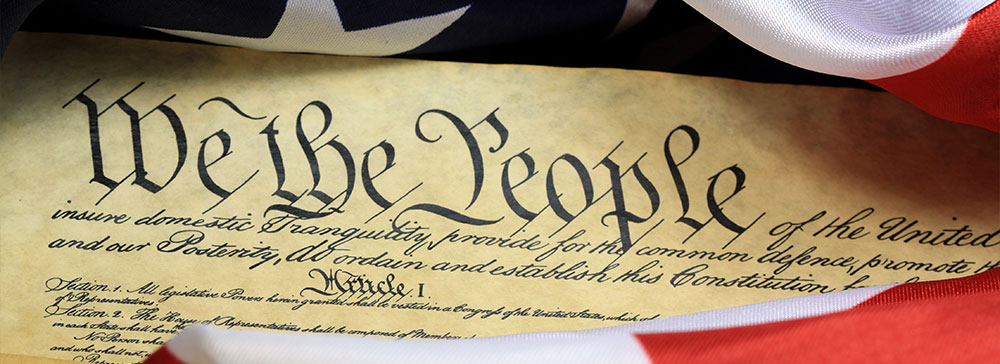 We the People of the United
insure domestic Tranquility, provide for the common defence, promote
and our Posterity, do ordain and establish this Constitution
Article. I.
Section. 1. All legislative Powers herein granted shall be vested in a Congress of the United States, which
of Representatives.
Section. 2. The House of Representatives shall be composed of Member
in each State shall have
No Person sha
and who shall not,